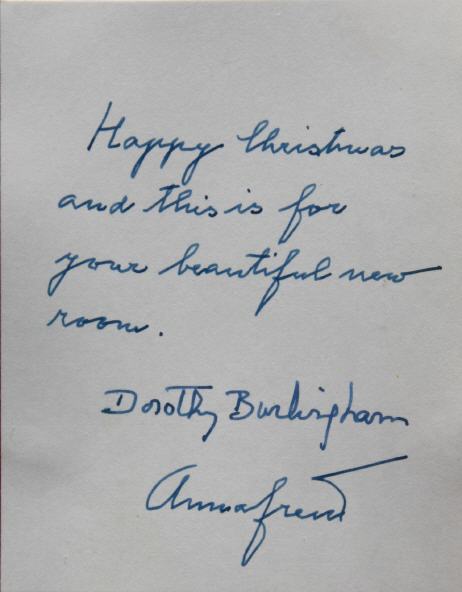 Happy Christmas
and this is for
your beautiful new
room.
Dorothy Burlingham
Annafreud